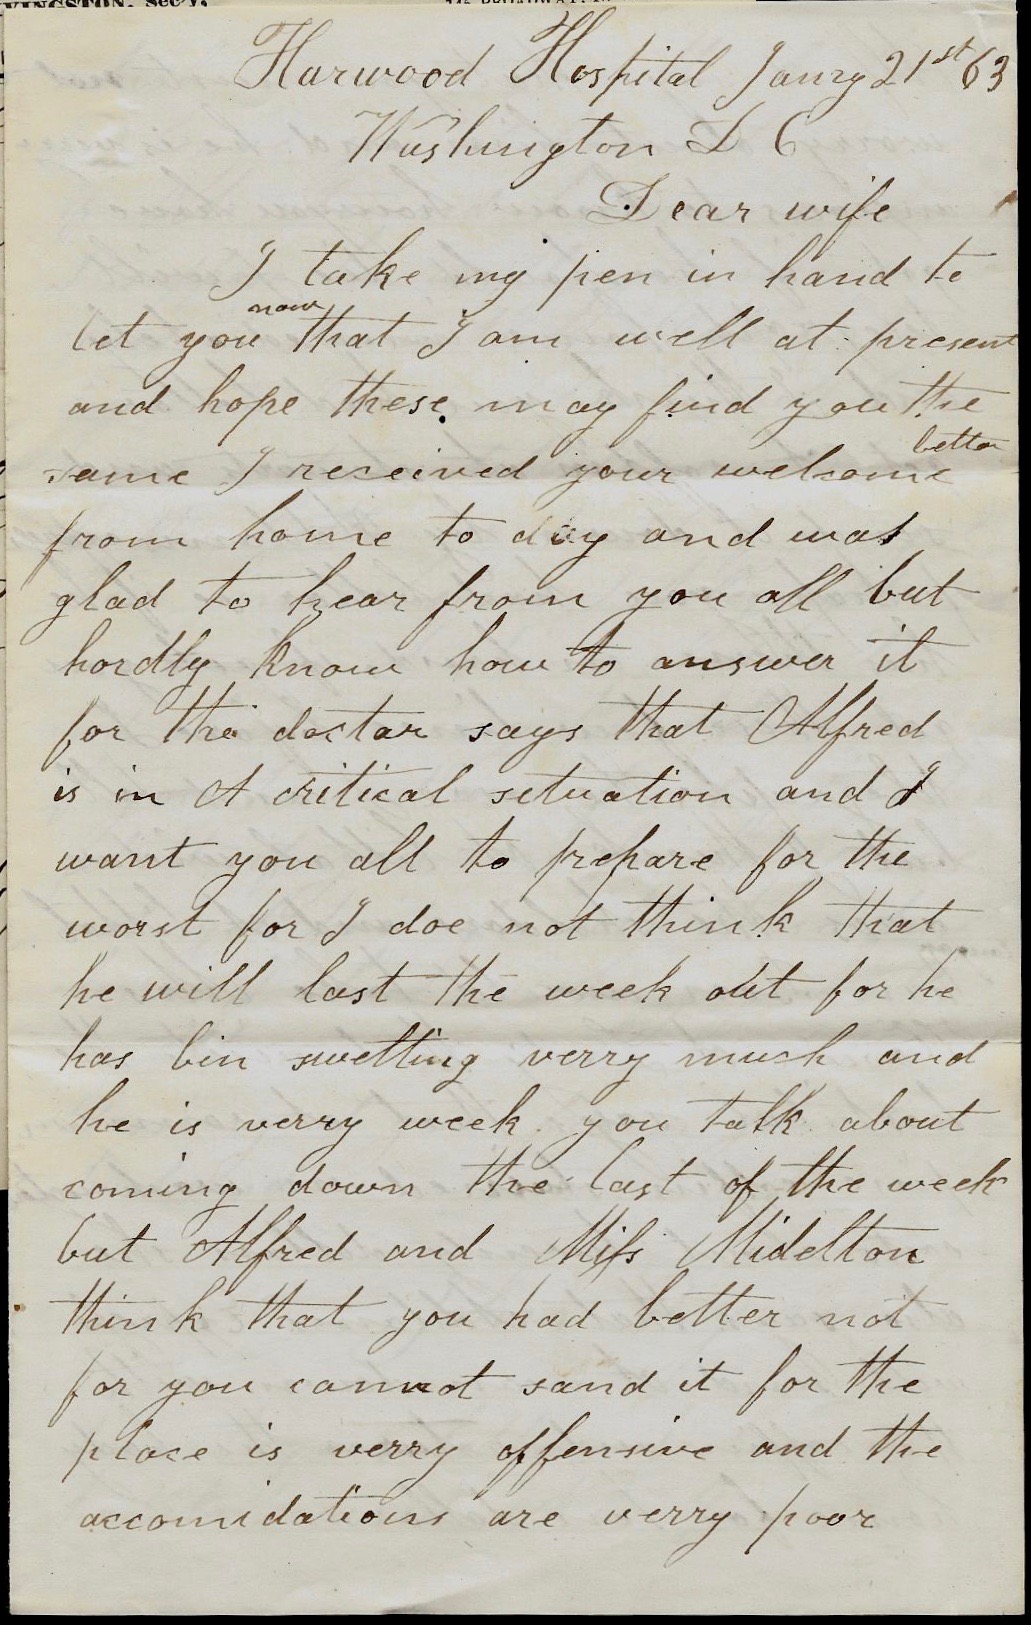 VINGSTON, Sec'y,
Harwood Hospital Janry 21st 63
Washington D C
Dear wife
I take my pen in hand to
now
let you that I am well at present
and hope these may find you the
letter
same I received your welcome
from home to day and was
glad to hear from you all but
hardly know how to answer it
for the doctar says that Alfred
is in A critical setuation and I
want you all to prepare for the
worst for I doe not think that
he will last the week out for he
has bin swetting verry much and
he is verry week you talk about
coming down the last of the week
but Alfred and Miss Midelton
think that you had better not
for you cannot sand it for the
place is verry offensive and the
accomidations are verry poor